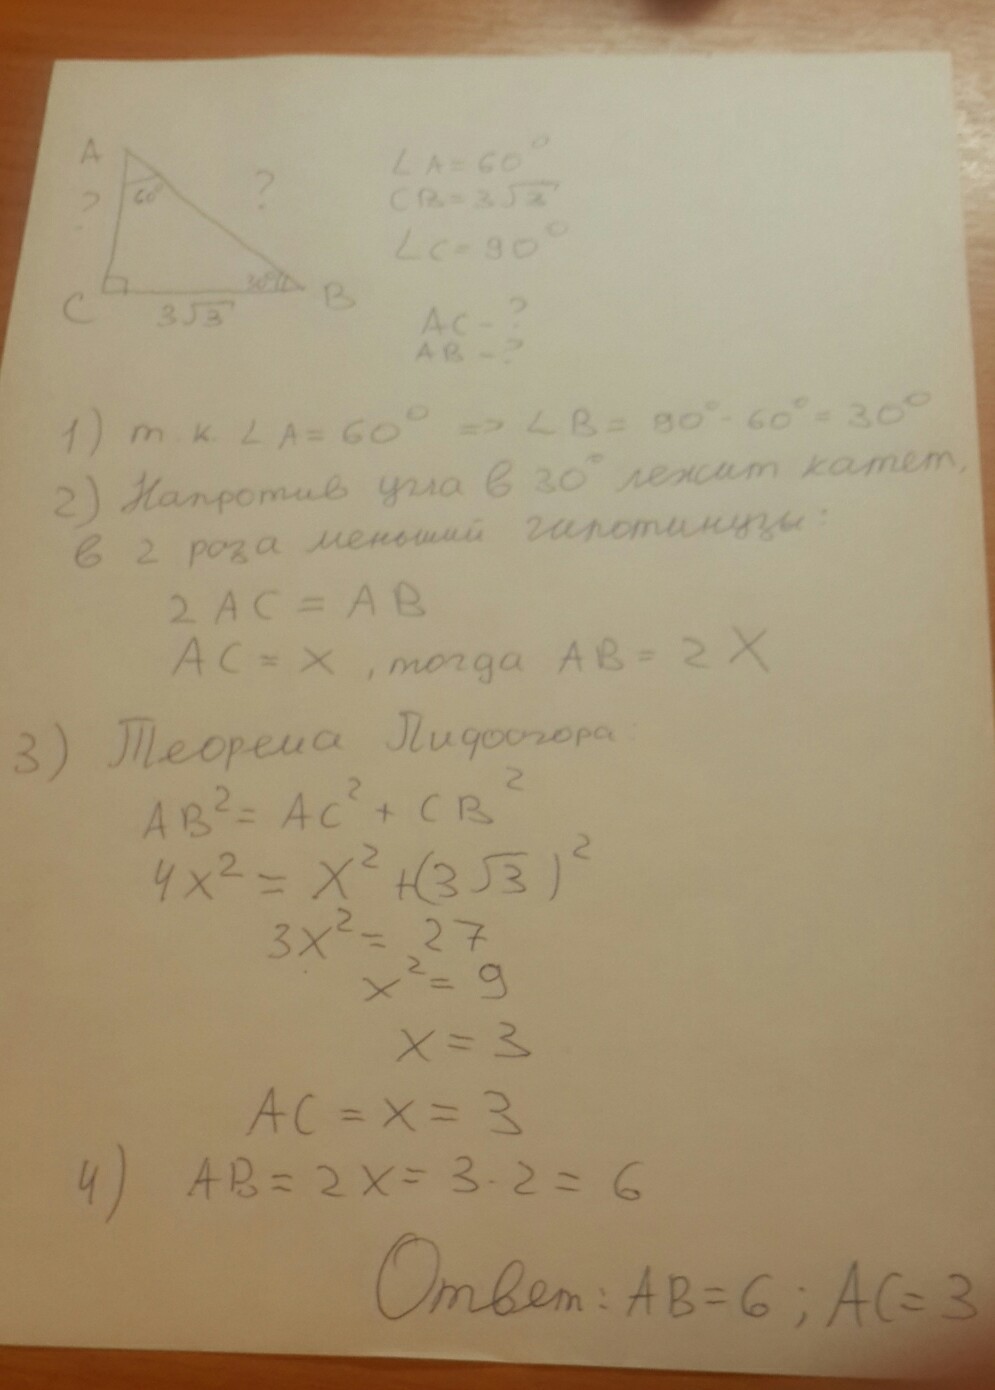 A
?
60°
?
C
3√3
30°
B
∠A=60°
CB=3√3
∠C=90°
AC-?
AB-?
1) т.к. ∠A=60° => ∠B= 90°-60°=30°
2) Напротив угла в 30° лежит катет,
в 2 роза меньший гипотинузы:
2AC=AB
AC=X, тогда AB=2X
3) Теорема Пифоогора:
AB²=AC²+CB²
4x²=x²+(3√3)²
3x²=27
x²=9
x=3
AC=x=3
4) AB=2x=3·2=6
Ответ: AB=6; AC=3